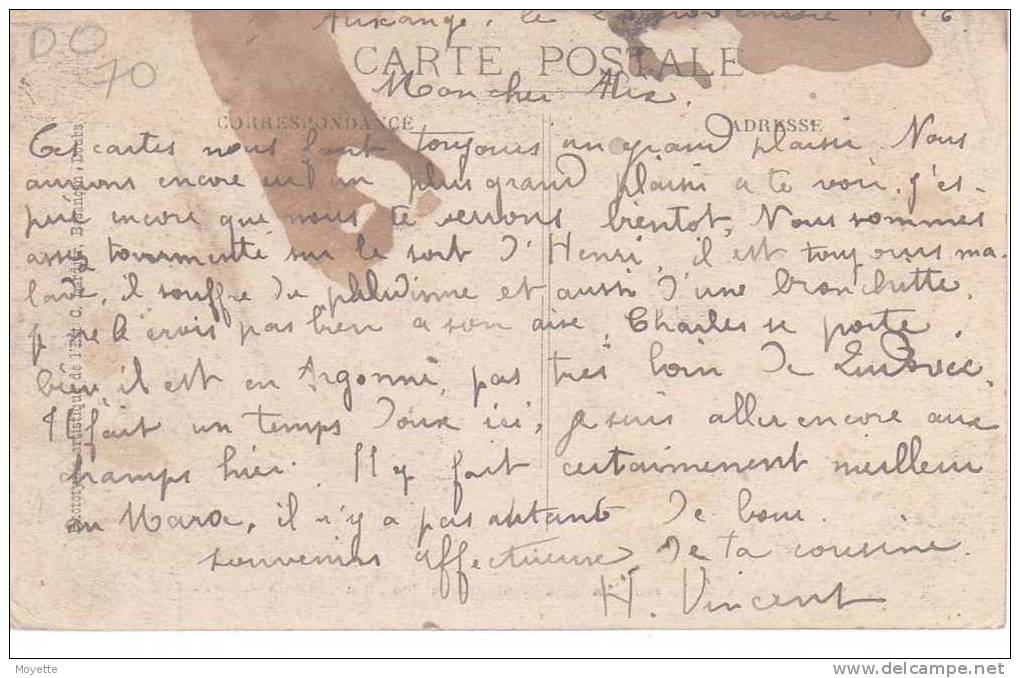 DO
70
Auxange, le novembre
CARTE POSTALE
Mon cher Alix.
CORRESPONDANCE
ADRESSE
Tes cartes nous font toujours un grand plaisir Nous
aurions encore un plus grand plaisir a te voir. j'es-
père encore que nous te verrons bientot, Nous sommes
assez tourmenté sur le sort d'Henri, il est toujours ma-
lade, il souffre de paludisme et aussi d'une bronchitte.
je ne le crois pas bien a son aise, Charles se porte
bien, il est en Argonne, pas très loin de Ludovic.
Il fait un temps doux ici, je suis aller encore aux
champs hier. Il y fait certainement meilleur
au Maroc, il n'y a pas autant de boue.
souvenirs affectueux de ta cousine.
H. Vincent
Phototypie artistique de l'Est C. Lardier, Besançon, Doubs
Moyette
www.delcampe.net